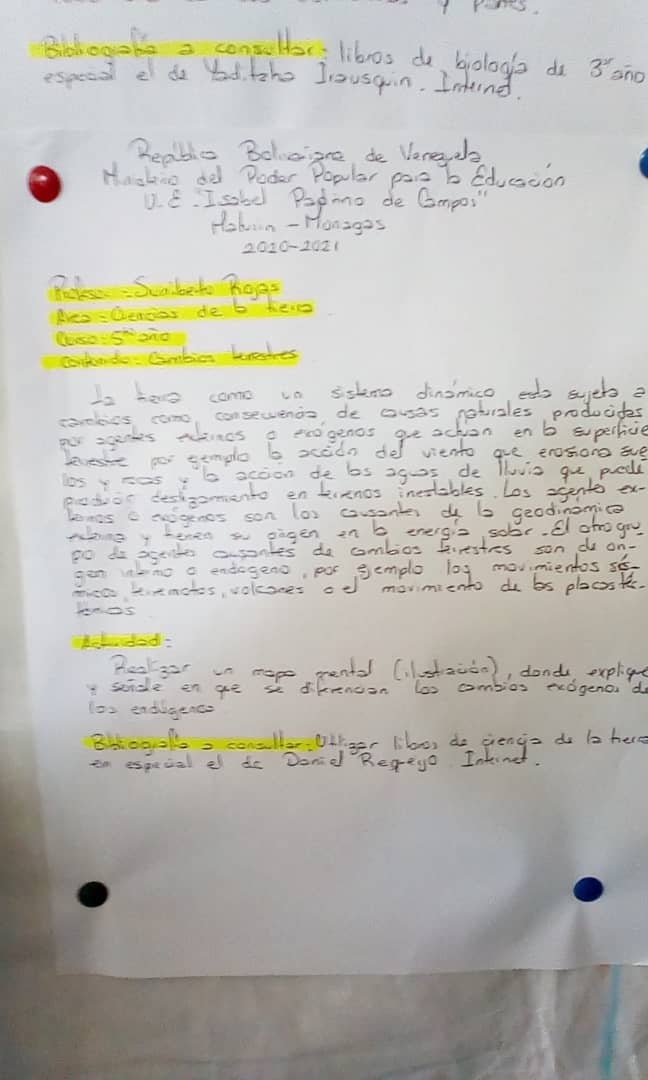 y partes.
Bibliografía a consultar: libros de biología de 3er año
especial el de Yaditzha Irausquin. Internet.
República Bolivariana de Venezuela
Ministerio del Poder Popular para la Educación
U.E "Isabel Padrino de Campos"
Maturín - Monagas
2020-2021
Profesor: Rojas
Area: Ciencias de la tierra
Curso: 5to año
Contenido: Cambios terrestres
La tierra como un sistema dinámico esta sujeta a
cambios como consecuencia de causas naturales producidas
por agentes externos o exógenos que actuan en la superficie
terrestre por ejemplo la acción del viento que erosiona sue
los y rocas y la acción de las aguas de lluvia que puede
producir deslizamiento en terrenos inestables. Los agente ex-
ternos o exógenos son los causantes de la geodinamica
externa y tienen su origen en la energía solar. El otro gru
po de agentes causantes de cambios terrestres son de ori-
gen interno o endogeno, por ejemplo los movimientos sís-
micos, terremotos, volcanes o el movimiento de las placas tec-
tónicas
Actividad:
Realizar un mapa mental (ilustración), donde explique
y señale en que se diferencian los cambios exógenos de
los endógenos
Bibliografía a consultar: Utilizar libros de ciencia de la tierra
en especial el de Daniel Internet.